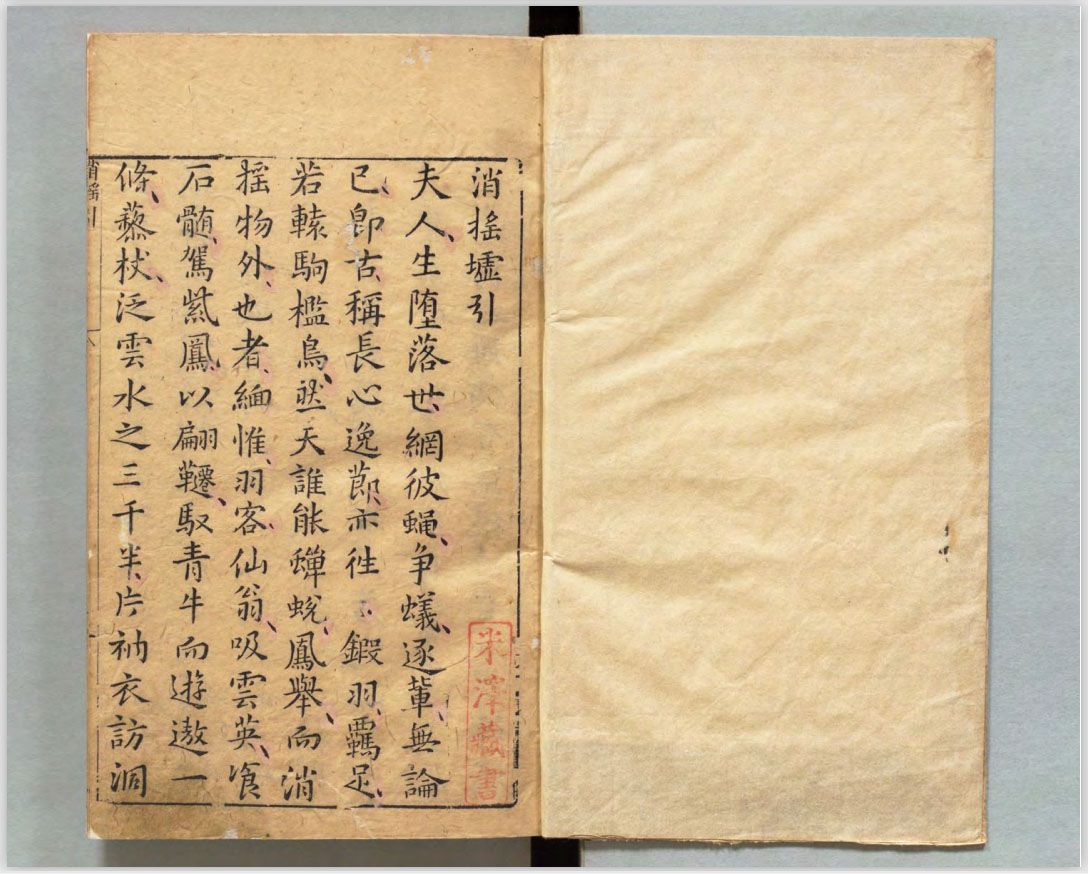 消搖墟引
夫人生墮落世網彼蝇争蟻逐輩無論
已卽古稱長心逸莭亦徃〻鍜羽羈足
若轅駒檻鳥然天誰能蟬蛻鳳舉而消
搖物外也者緬惟羽客仙翁吸雲英飡
石髓駕紫鳳以翩韆馭青牛而遊遨一
條藜杖泛雲水之三千半片衲衣訪洞
消搖引
米澤藏書